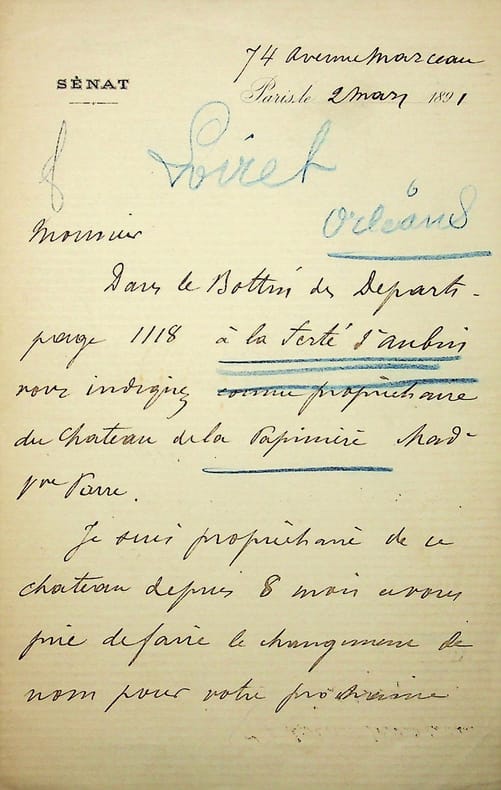 74 avenue Marceau
SÉNAT
Paris, le 2 mars 1891
Loiret
Orléans
Monsieur
Dans le Bottin des Départs
page 1118 à la Ferté St aubin
vous indiquez comme propriétaire
du Chateau de la Papinière Made
Vve Parre.
Je suis propriétaire de ce
chateau depuis 8 mois et vous
prie de faire le changement de
nom pour votre prochaine